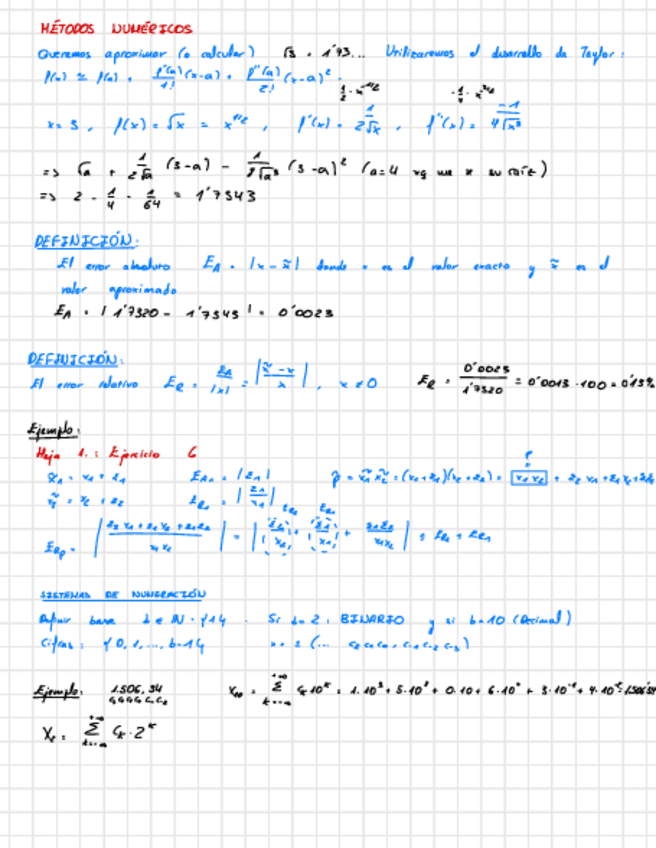 MÉTODOS NUMÉRICOS
Queremos aproximar (o calcular) √3 = 1'73... Utilizaremos el desarrollo de Taylor:
f(x) ≃ f(a) + f'(a)/1! (x-a) + f''(a)/2! (x-a)²
x=3, f(x) = √x = x^1/2, f'(x) = 1/2√x, f''(x) = -1/4√x³
=> √a + 1/2√a (3-a) - 1/8√a³ (3-a)² (a=4
=> 2 - 1/4 - 1/64 = 1'7343
DEFINICIÓN:
El error absoluto E_A = |x - x̃| donde x es el valor exacto y x̃ es el
valor aproximado
E_A = | 1'7320 - 1'7343 | = 0'0023
DEFINICIÓN:
El error relativo E_R = E_A/|x| = |x̃-x / x|, x ≠ 0 E_R = 0'0023/1'7320 = 0'0013 · 100 = 0'13%
Ejemplo:
Hoja 1: Ejercicio 6
x̃₁ = x₁ + ε₁ E_A₁ = |ε₁| p̃ = x̃₁ x̃₂ = (x₁+ε₁)(x₂+ε₂) = x₁x₂ + ε₂ x₁ + ε₁ x₂ + ε₁ε₂
x̃₂ = x₂ + ε₂ E_R₁ = |ε₁/x₁|
E_Rp = | ε₂x₁ + ε₁x₂ + ε₁ε₂ / x₁x₂ | = | ε₂/x₂ + ε₁/x₁ + ε₁ε₂/x₁x₂ |
SISTEMAS DE NUMERACIÓN
Definir base b ∈ ℕ - {1}. Si b=2, BINARIO y si b=10 (Decimal)
Cifras: {0, 1, ..., b-1}
Ejemplo: 1.506,34 X₁₀ = Σ cₖ 10^k = 1·10³ + 5·10² + 0·10 + 6·10⁰ + 3·10⁻¹ + 4·10⁻² = 1506'34
X₂ = Σ cₖ · 2^k